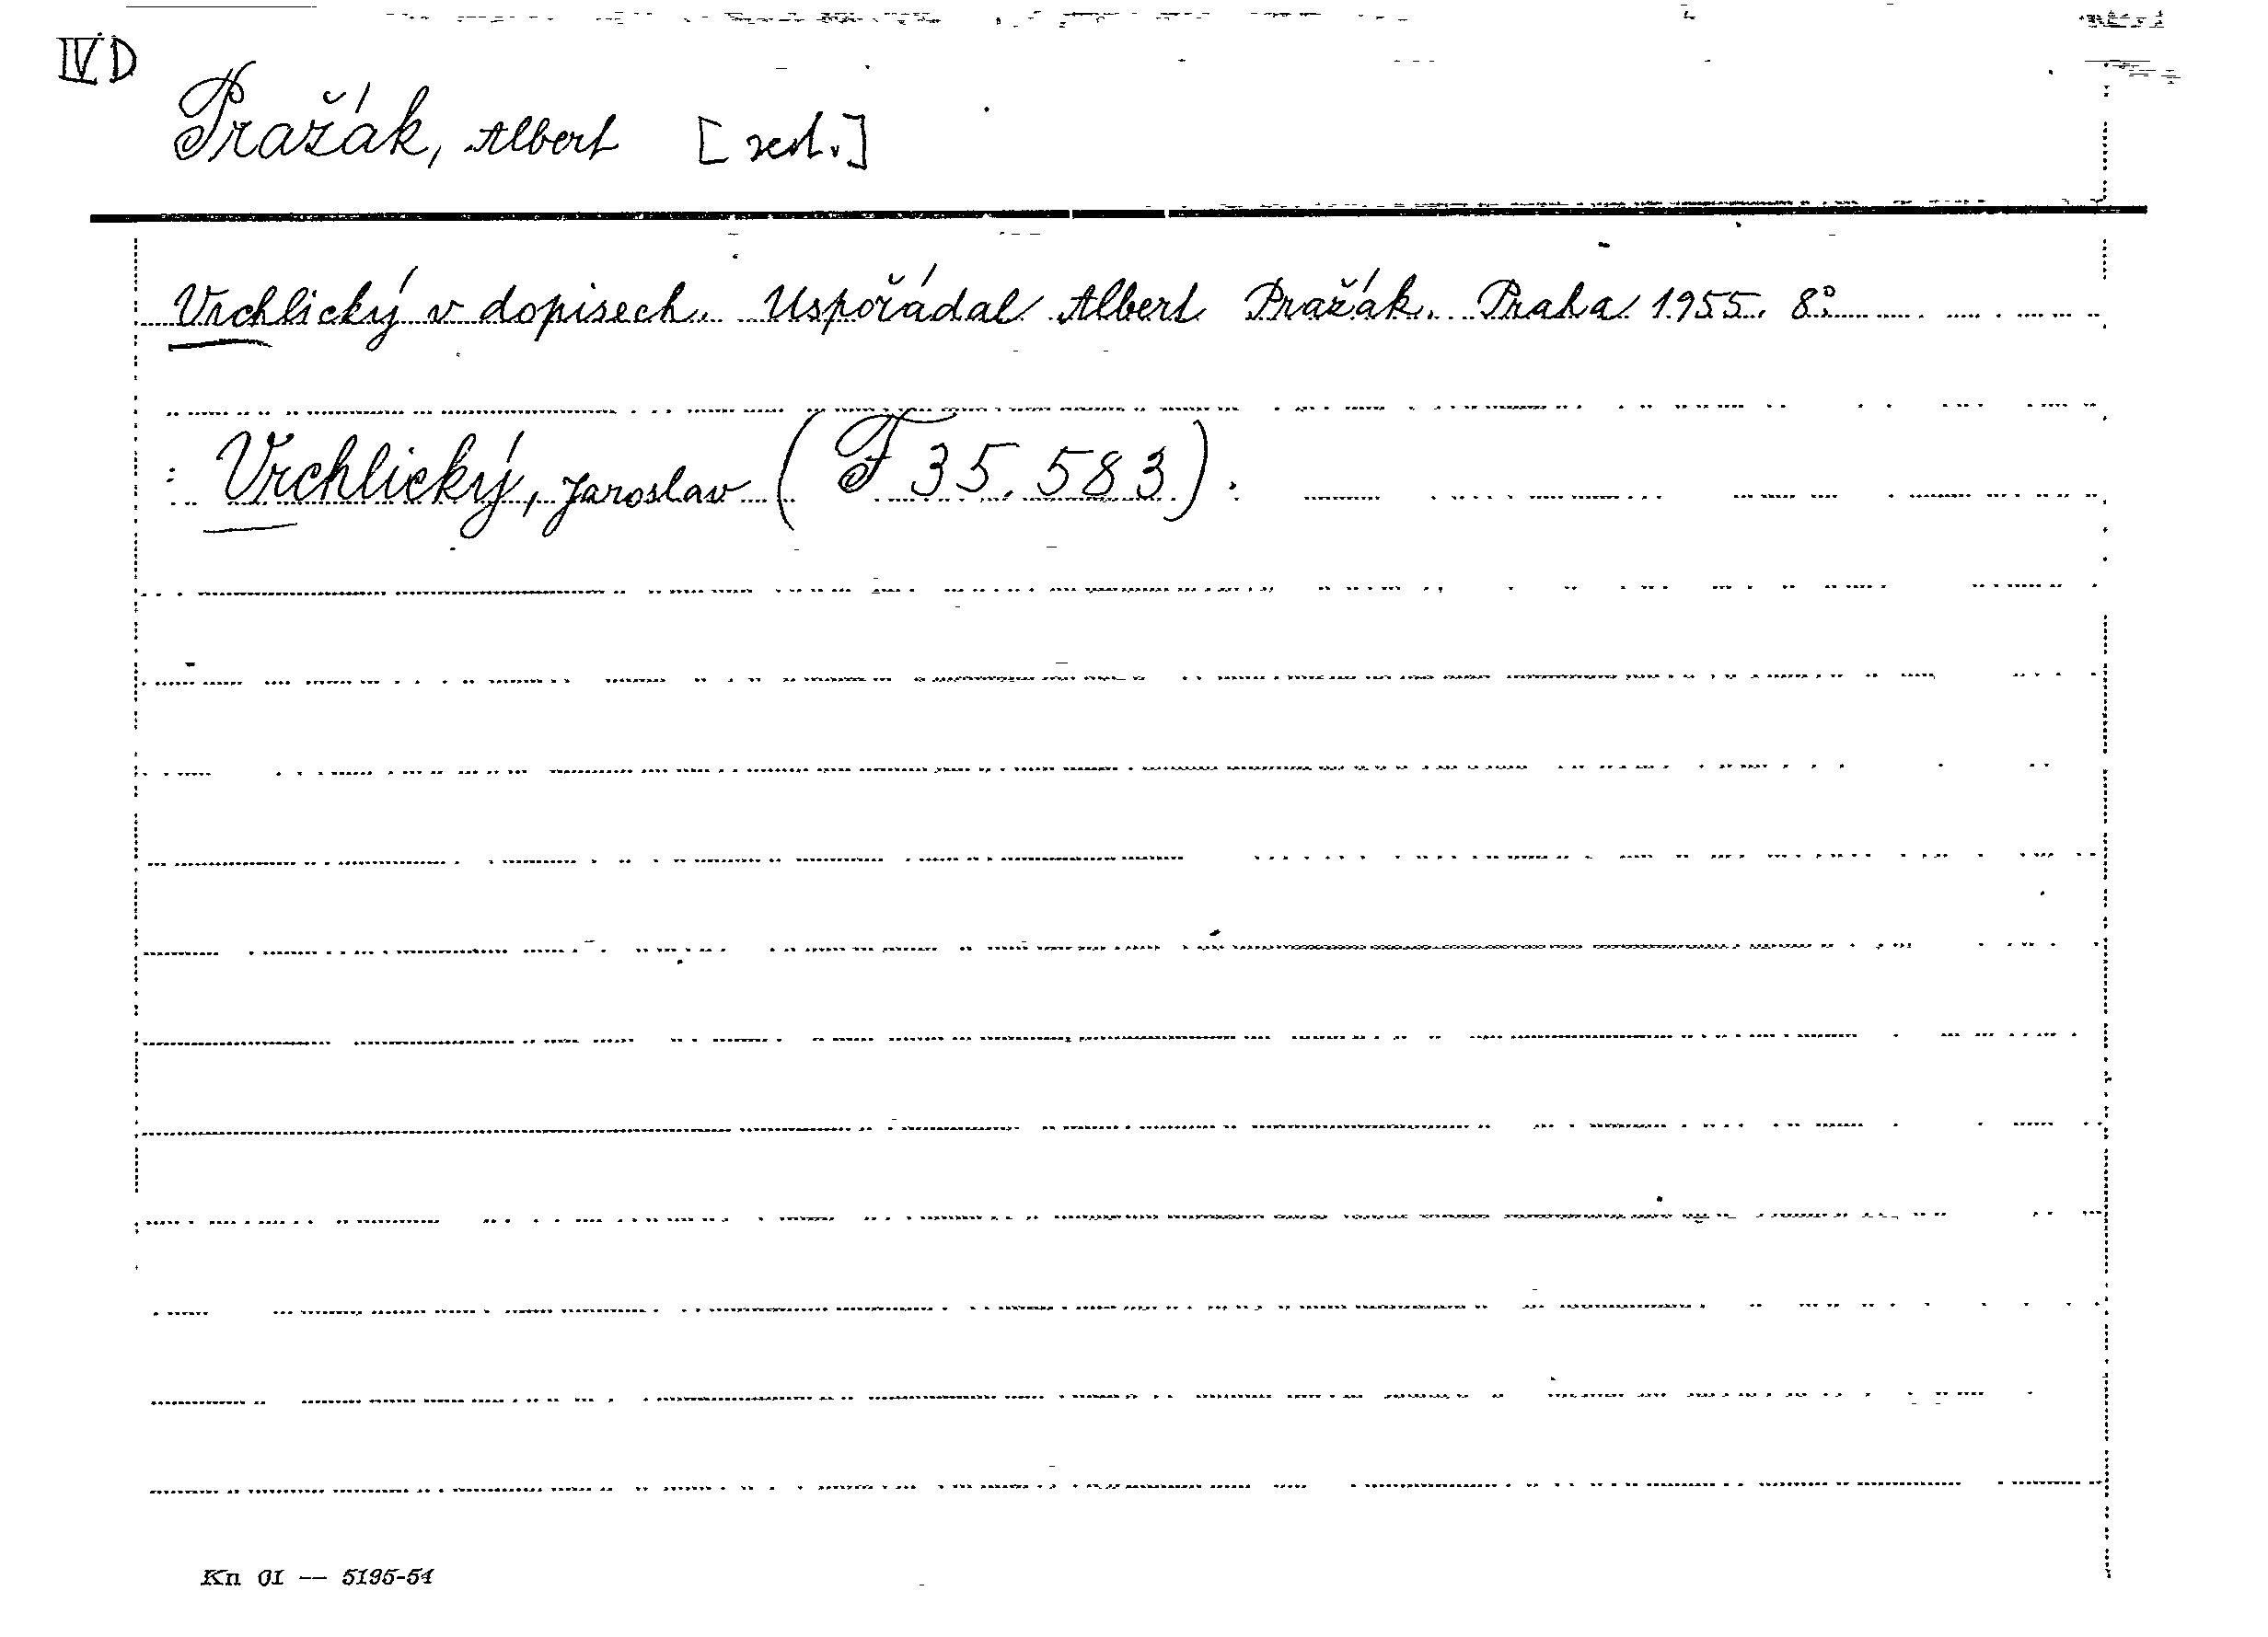 IV D
Pražák, Albert [red.]
Vrchlický v dopisech. Uspořádal Albert Pražák. Praha 1955. 8°.
: Vrchlický, Jaroslav (F 35.583).
Kn 01 — 5195-54